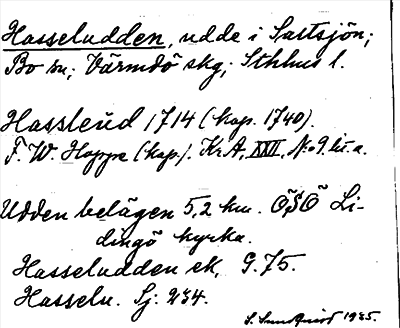 Hasseludden, udde i Saltsjön;
Bo sn; Värmdö skg; Sthlms l.
Hassleüd 1714 (kop. 1740).
F. W. Hoppe (kop.). Kr A, XXVI, No 9 lit. a.
Udden belägen 5,2 km. ÖSÖ Li-
dingö kyrka.
Hasseludden ek. G. 75.
Hasselu. Sj. 234.
1935.